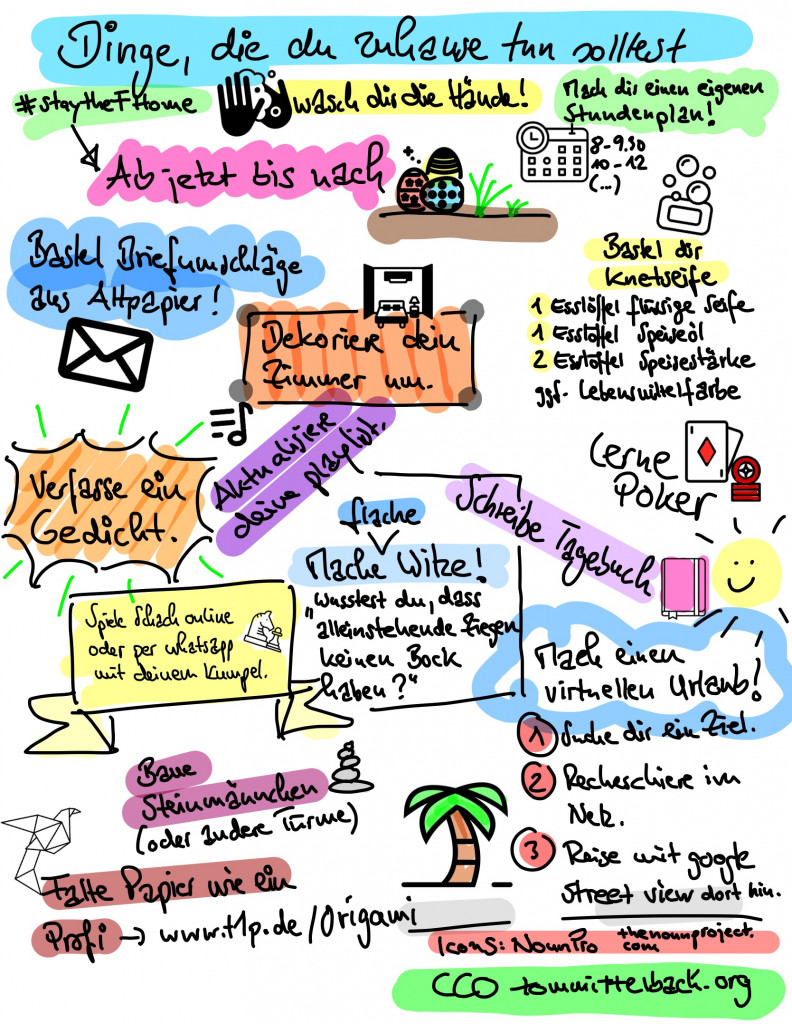 Dinge, die du zuhause tun solltest
#staytheFHome
wasch dir die Hände!
Mach dir einen eigenen
Stundenplan!
8-9.30
10-12
(...)
Ab jetzt bis nach
Bastel Briefumschläge
aus Altpapier!
Bastel dir
Knetseife
1 Esslöffel flüssige Seife
1 Esslöffel Speiseöl
2 Esslöffel Speisestärke
ggf. Lebensmittelfarbe
Dekoriere dein
Zimmer um.
Aktualisiere
deine playlist.
Lerne
Poker
Verfasse ein
Gedicht.
Schreibe Tagebuch
flache
Mache Witze!
"Wusstest du, dass
alleinstehende Ziegen
keinen Bock
haben?"
Spiele Schach online
oder per whatsapp
mit deinem Kumpel.
Mach einen
virtuellen Urlaub!
1 Suche dir ein Ziel.
2 Recherchiere im
Netz.
3 Reise mit google
street view dort hin.
Baue
Steinmännchen
(oder andere Türme)
Falte Papier wie ein
Profi → www.t1p.de/Origami
Icons: NounPro thenounproject.
com
CC0 tommittelbach.org